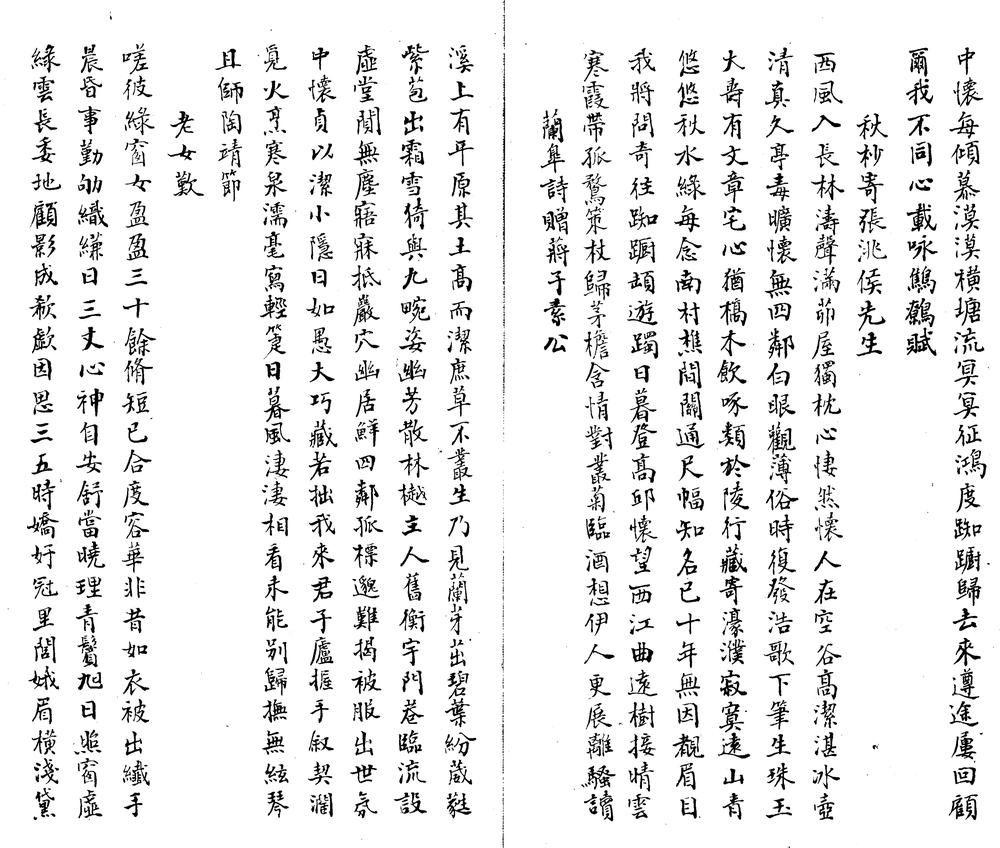 中懷每傾慕漠漠橫塘流冥冥征鴻度踟躕歸去來遵途屢回顧
爾我不同心載咏鷦鷯賦
秋杪寄張洮侯先生
西風入長林濤聲滿茆屋獨枕心悽然懷人在空谷高潔湛冰壺
清真久亭毒曠懷無四鄰白眼觀薄俗時復發浩歌下筆生珠玉
大壽有文章宅心猶槁木飲啄類於陵行藏寄濠濮寂寞遠山青
悠悠秋水綠每念南村樵間關通尺幅知名已十年無因覩眉目
我將問奇往踟躕趑遊躅日暮登高邱懷望西江曲遠樹接晴雲
寒霞帶孤鶩策杖歸茅檐含情對叢菊臨酒想伊人更展離騷讀
蘭臯詩贈蔣子素公
溪上有平原其土高而潔庶草不叢生乃見蘭芽茁碧葉紛葳蕤
紫苞出霜雪猗與九畹姿幽芳散林樾主人舊衡宇門巷臨流設
虛堂閴無塵寤寐抵巖穴幽居鮮四鄰孤標邈難揭被服出世氛
中懷貞以潔小隱日如愚大巧藏若拙我來君子廬握手叙契濶
覓火烹寒泉濡毫寫輕箑日暮風淒淒相看未能別歸撫無絃琴
且師陶靖節
老女歎
嗟彼綠窗女盈盈三十餘脩短已合度容華非昔如衣被出纖手
晨昏事勤劬織縑日三丈心神自安舒當曉理青鬢旭日照窗虛
綠雲長委地顧影成欷歔因思三五時嬌好冠里閭娥眉橫淺黛